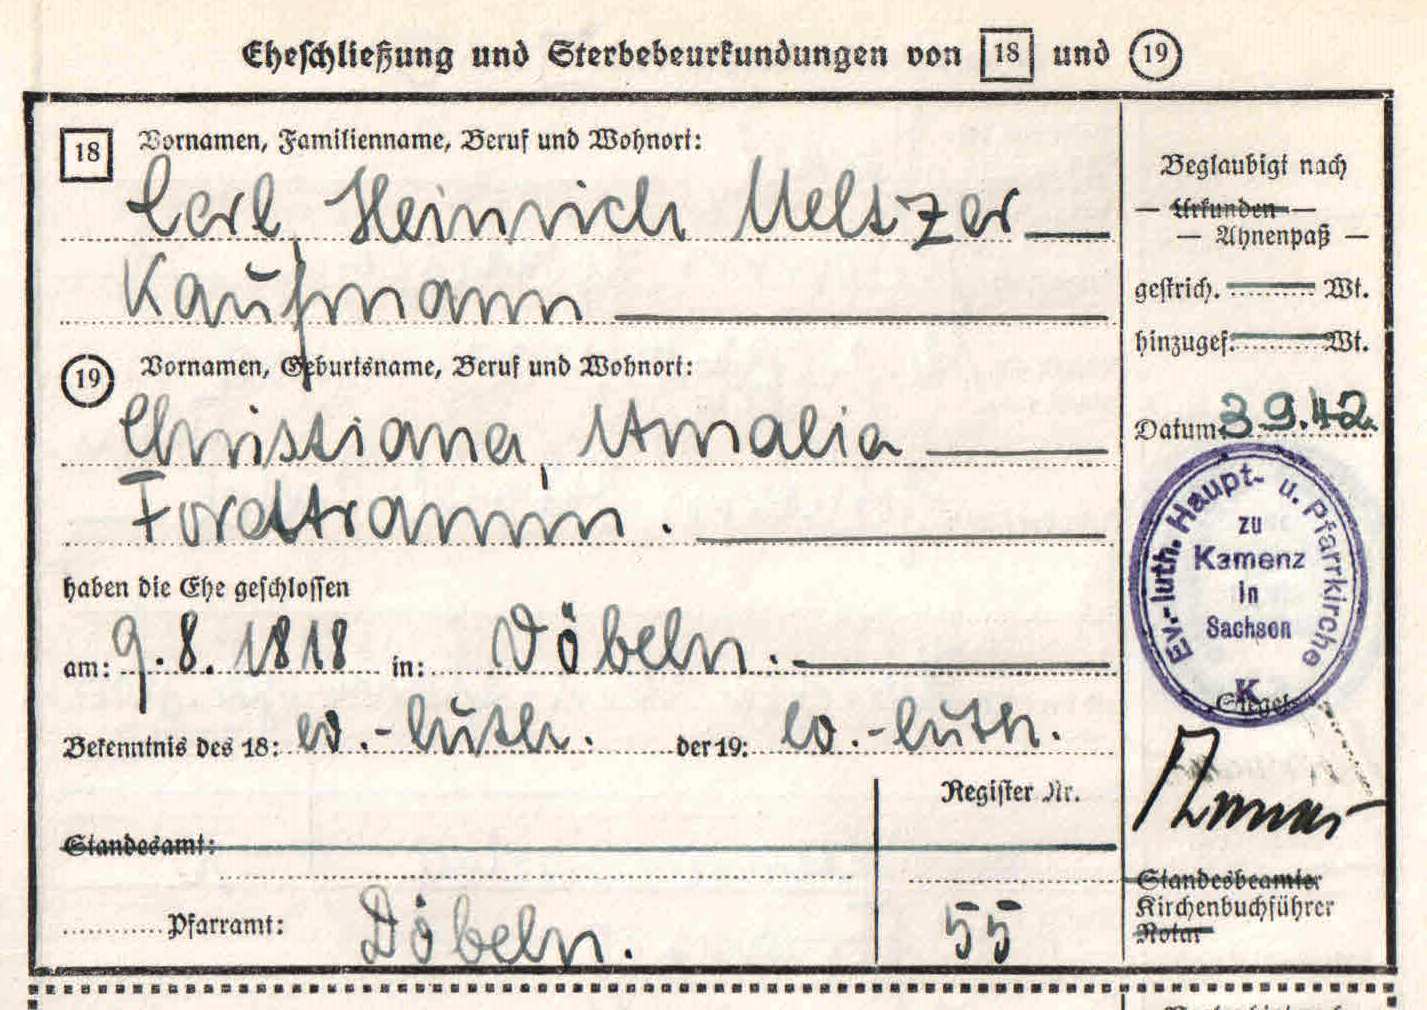 Eheschließung und Sterbebeurkundungen von 18 und 19
18 Vornamen, Familienname, Beruf und Wohnort:
Carl Heinrich Meltzer
Kaufmann
19 Vornamen, Geburtsname, Beruf und Wohnort:
Christiana Amalia
Fordtramin.
haben die Ehe geschlossen
am: 9.8.1818 in: Döbeln.
Bekenntnis des 18: ev.-luth. der 19: ev.-luth.
Register Nr.
Standesamt:
Pfarramt: Döbeln. 55
Beglaubigt nach
— Urkunden —
— Ahnenpaß —
gestrich. Wt.
hinzugef. Wt.
Datum: 3.9.42.
Ev.-luth. Haupt- u. Pfarrkirche
zu
Kamenz
in
Sachsen
K
Siegel
Standesbeamter
Kirchenbuchführer
Notar